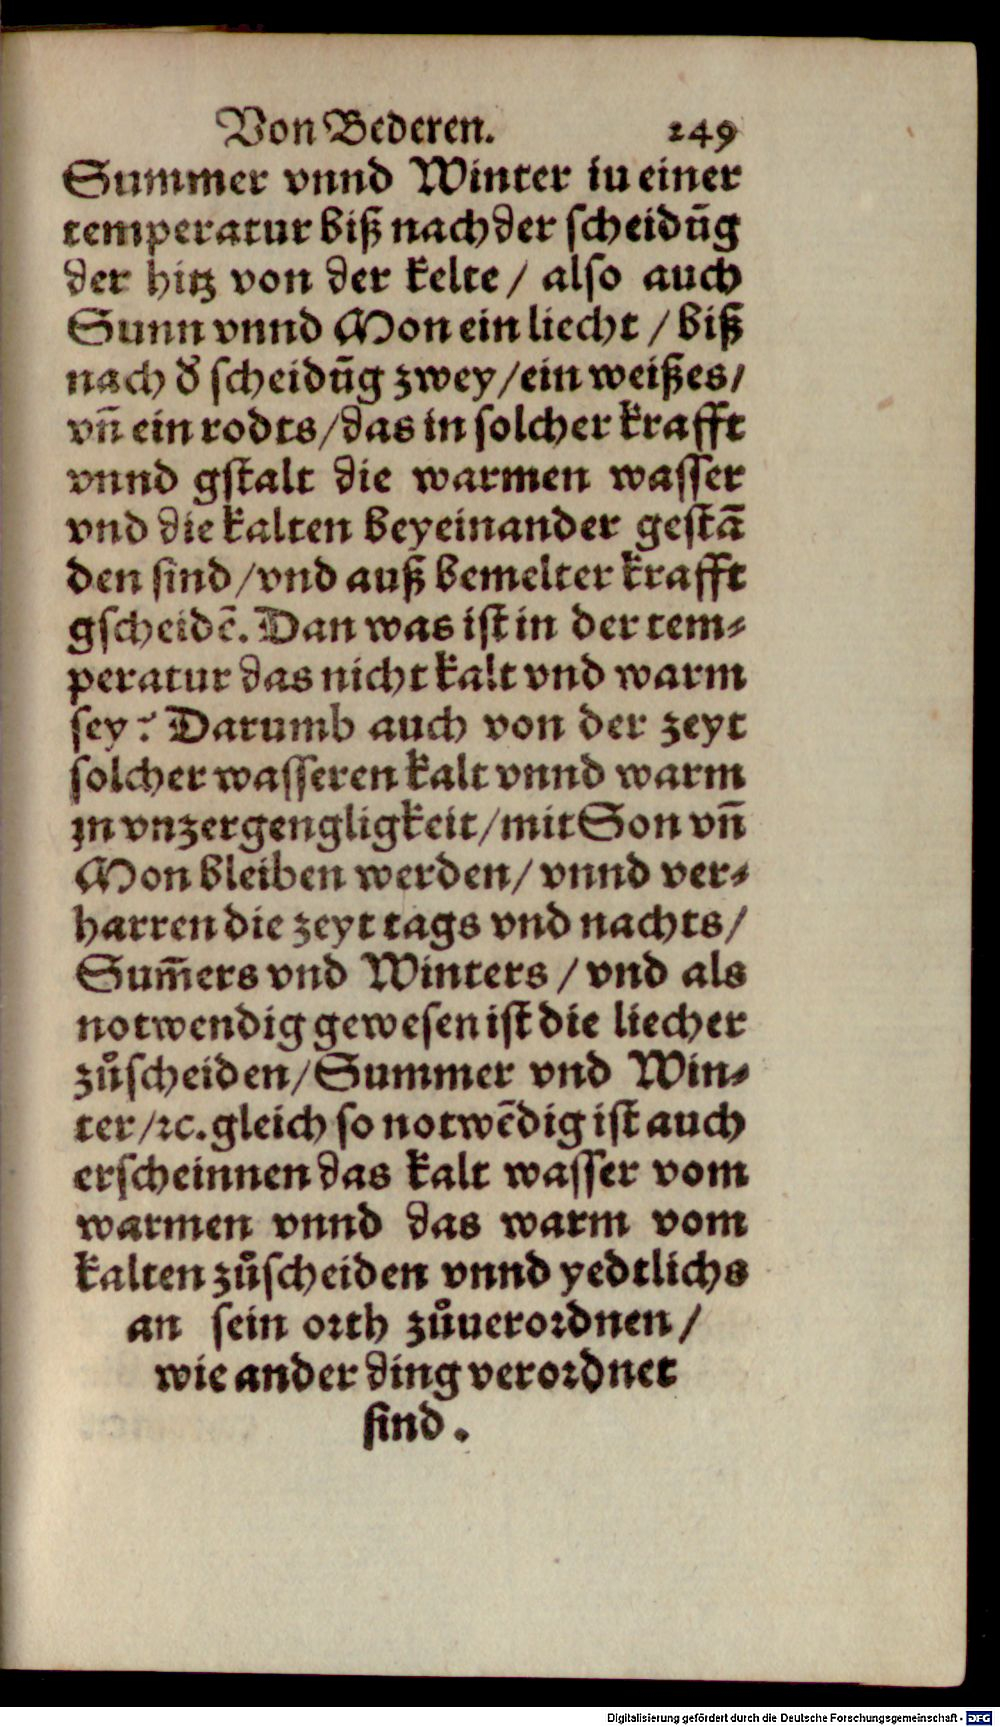 Von Bederen. 249
Summer vnnd Winter in einer
temperatur biß nach der scheidūg
der hitz von der kelte / also auch
Sunn vnnd Mon ein liecht / biß
nach ď scheidūg zwey / ein weißes /
vñ ein rodts / das in solcher krafft
vnnd gstalt die warmen wasser
vnd die kalten beyeinander gestā
den sind / vnd auß bemelter krafft
gscheidē. Dan was ist in der tem⸗
peratur das nicht kalt vnd warm
sey? Darumb auch von der zeyt
solcher wasseren kalt vnnd warm
in vnzergengligkeit / mit Son vñ
Mon bleiben werden / vnnd ver⸗
harren die zeyt tags vnd nachts /
Sum̄ers vnd Winters / vnd als
notwendig gewesen ist die liecher
zůscheiden / Summer vnd Win⸗
ter / ꝛc. gleich so notwēdig ist auch
erscheinnen das kalt wasser vom
warmen vnnd das warm vom
kalten zůscheiden vnnd yedtlichs
an sein orth zůuerordnen /
wie ander ding verordnet
sind.
Digitalisierung gefördert durch die Deutsche Forschungsgemeinschaft - DFG